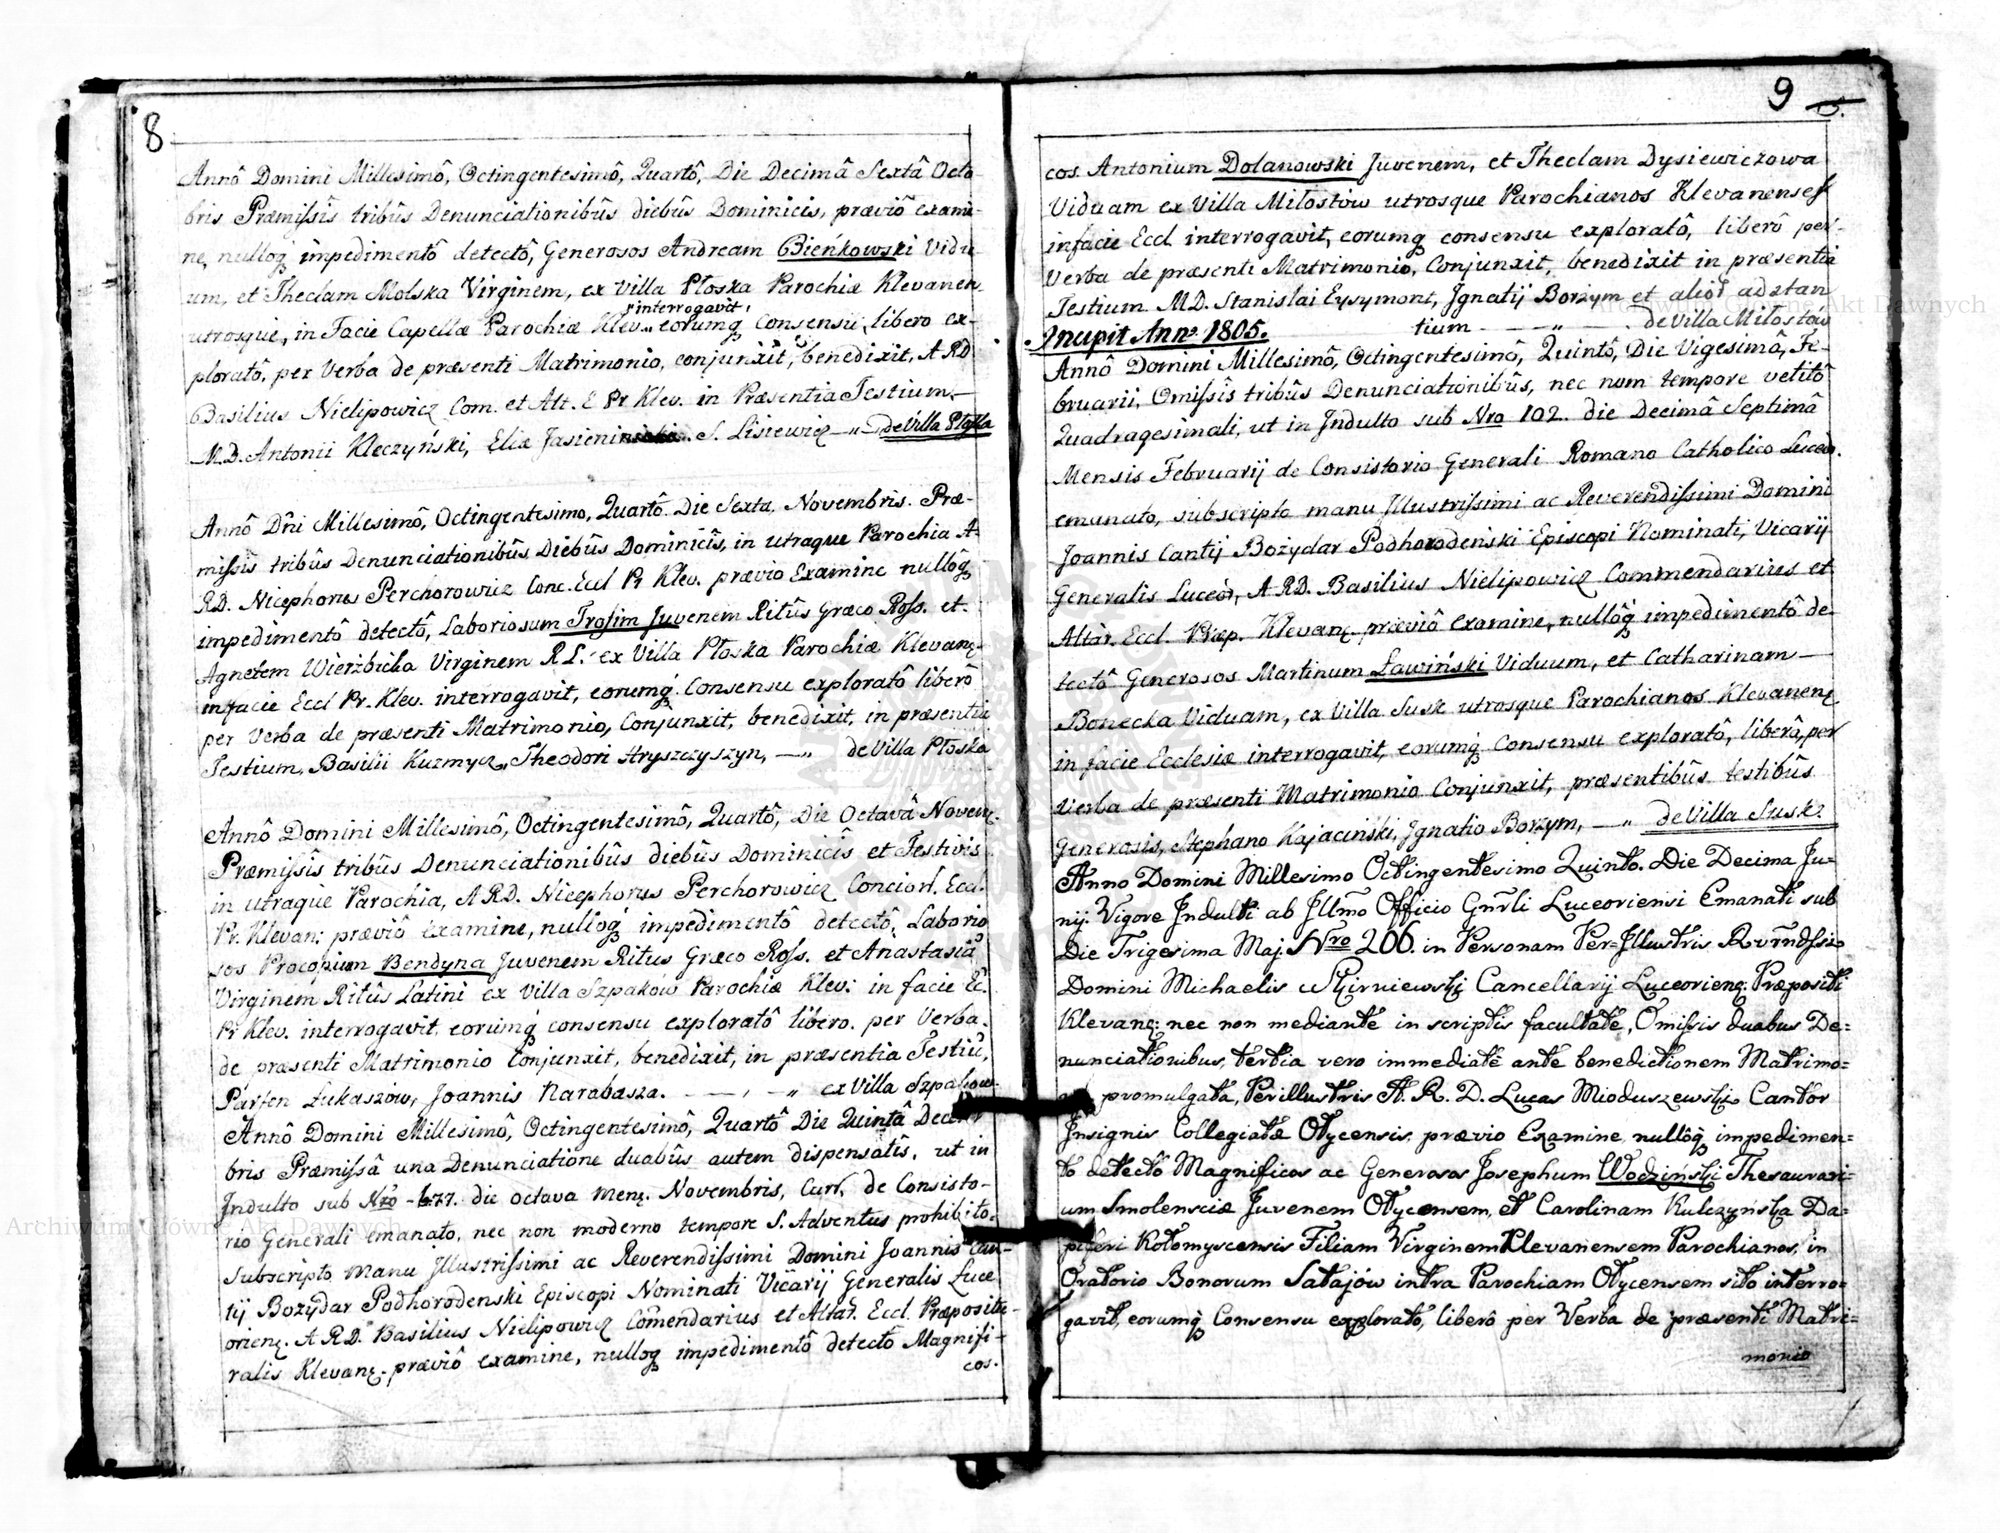 8
Annô Domini Millesimô, Octingentesimô, Quartô, Die Decimâ Sextâ Octo-
bris Præmissis tribûs Denunciationibûs diebûs Dominicis, præviô exami-
ne, nulloq̃ impedimentô detectô, Generosos Andream Bieńkowski Vidu-
um, et Theclam Molska Virginem, ex Villa Płoska Parochiæ Klevanen
"interrogavit,
utrosque, in Facie Capellæ Parochiæ Klev. " eorumq̃ Consensû, libero ex-
ploratô, per Verba de præsenti Matrimonio, conjunxit, benedixit, A RD
Basilius Nielipowicz Com. et Alt. E Pr Klev. in Præsentia Testium,—
M.D. Antonii Kleczyński, Eliæ S. Lisiewicz —"— de Villa Płoska
Annô Dñi Millesimô, Octingentesimo, Quartô. Die Sexta, Novembris. Præ-
missis tribûs Denunciationibûs Diebûs Dominicîs, in utraque Parochia A-
RD. Nicephorus Perchorowicz Conc. Eccl Pr Klev. prævio Examine nullôq̃
impedimentô detectô, Laboriosum Trofim Juvenem Ritûs Græco Ross. et
Agnetem Wierzbicka Virginem R L. ex Villa Płoska Parochiæ Klevanę.
in facie Eccl Pr. Klev. interrogavit, eorumq̃. Consensu exploratô liberô
per Verba de præsenti Matrimonio, Conjunxit, benedixit, in præsentia
Testium, Basilii Kuzmycz, Theodori Hryszczyszyn, —" de Villa Płoska
Annô Domini Millesimô, Octingentesimô, Quartô, Die Octavâ Novem.
Præmissîs tribûs Denunciationibûs diebûs Dominicîs et Festivis
in utraque Parochia, A RD. Nicephorus Perchorowicz Concion. Eccl.
Pr. Klevan: præviô examine, nulloq̃ impedimentô detectô, Laborio
sos Procopium Bendyna Juvenem Ritus Græco Ross. et Anastasiã
Virginem Ritûs Latini ex Villa Szpaków Parochiæ Klev: in facie Ec.
Pr Klev. interrogavit eorumq̃ consensu exploratô libero. per Verba
de præsenti Matrimonio Conjunxit, benedixit, in præsentia Testiũ,
Parfen Łukaszow, Joannis Narabasza. — , — " ex Villa Szpaków
Annô Domini Millesimô, Octingentesimô, Quartô Die Quintâ Decem
bris Præmissâ una Denunciatione duabûs autem dispensatîs, ut in
Indulto sub Nro 477. die octava Menę. Novembris, Curr, de Consisto-
rio Generali emanato, nec non moderno tempore S. Adventus prohibito,
subscripto manu Illustrissimi ac Reverendissimi Domini Joannis Can-
tij Bozydar Podhorodenski Episcopi Nominati Vicarij Generalis Luce
orienę. A RD. Basilius Nielipowicz Comendarius et Altar. Eccl. Præpositu-
ralis Klevanę. præviô examine, nulloq̃ impedimentô detectô Magnifi-
cos.
9
cos. Antonium Dolanowski Juvenem, et Theclam Dysiewiczowa
Viduam ex Villa Miłostów utrosque Parochianos Klevanenses
in facie Eccl. interrogavit, eorumq̃ consensu exploratô, liberô per
Verba de præsenti Matrimonio, Conjunxit, benedixit in præsentia
Testium M.D. Stanislai Eysymont, Ignatij Borzym et alior̃ adstan
tium — — " — de Villa Miłostów
Incipit Anno 1805.
Annô Domini Millesimô, Octingentesimô, Quintô, Die Vigesimâ, Fe-
bruarii, Omissis tribûs Denunciationibûs, nec non tempore vetitô
Quadragesimali, ut in Indulto sub Nro 102. die Decimâ Septimâ
Mensis Februarij de Consistorio Generali Romano Catholico Luceo.
emanato, subscripto manu Illustrissimi ac Reverendissimi Domini
Joannis Cantij Bożydar Podhorodeński Episcopi Nominati, Vicarij
Generalis Luceor, A RD. Basilius Nielipowicz Commendarius et
Altar. Eccl. Præp. Klevanę. præviô examine, nullôq̃ impedimentô de-
tectô Generosos Martinum Ławiński Viduum, et Catharinam —
Bonecka Viduam, ex Villa Susk utrosque Parochianos Klevanenę
in facie Ecclesiæ interrogavit, eorumq̃. Consensu exploratô, liberô, per
verba de præsenti Matrimonio Conjunxit, præsentibûs testibûs
Generosis, Stephano Kajaciński, Ignatio Borzym, — " de Villa Susk.
Anno Domini Millesimo Octingentesimo Quinto. Die Decima Ju=
nij. Vigore Indulti ab Illmõ Officio Gñrli Luceoriensi Emanati sub
Die Trigesima Maj. Nro 206. in Personam Per=Illustris Rvrndssi̅o
Domini Michaelis Cancellarij Luceorienę. Præpositi
Klevanę: nec non mediante in scriptis facultate, Omissis duabus De=
nunciationibus, tertia vero immediatê ante benedictionem Matrimo=
promulgata, Perillustris A. R. D. Lucas Mioduszewski Cantor
Insignis Collegiatæ Olycensis, prævio Examine nullôq̃ impedimen=
to detectô Magnificos ac Generosos Josephum Wodzińskj Thesaurari=
um Smolensciæ Juvenem Olycensem, et Carolinam Kulczyńska Da=
piferi Kołomyscensis Filiam Virginem Klevanensem Parochianos, in
Oratorio Bonorum Satajów intra Parochiam Olycensem sito interro=
gavit, eorumq̃ Consensu explorato, liberô per Verba de præsenti Matri=
monio
Archiwum Główne Akt Dawnych
Archiwum Główne Akt Dawnych